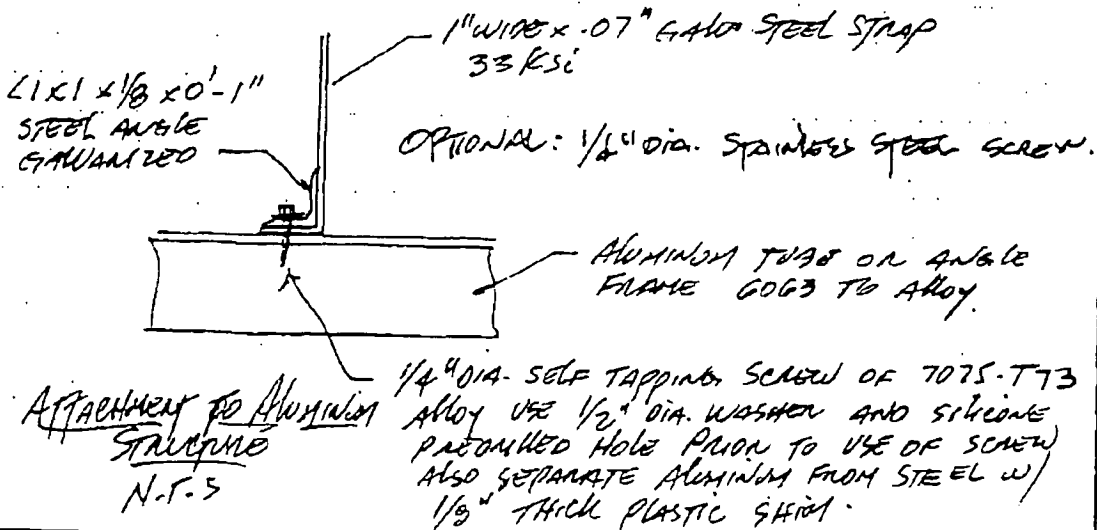 1" WIDE x .07" GALV STEEL STRAP
33 KSi
L1x1 x 1/8 x 0'-1"
STEEL ANGLE
GALVANIZED
OPTIONAL: 1/4" DIA. STAINLESS STEEL SCREW.
ALUMINUM TUBE OR ANGLE
FRAME 6063 T6 Alloy.
1/4" DIA. SELF TAPPING SCREW OF 7075-T73
Alloy USE 1/2" DIA. WASHER AND SILICONE
PREDRILLED HOLE PRIOR TO USE OF SCREW
ALSO SEPARATE ALUMINUM FROM STEEL W/
1/8" THICK PLASTIC SHIM.
ATTACHMENT TO ALUMINUM
STRUCTURE
N.T.S